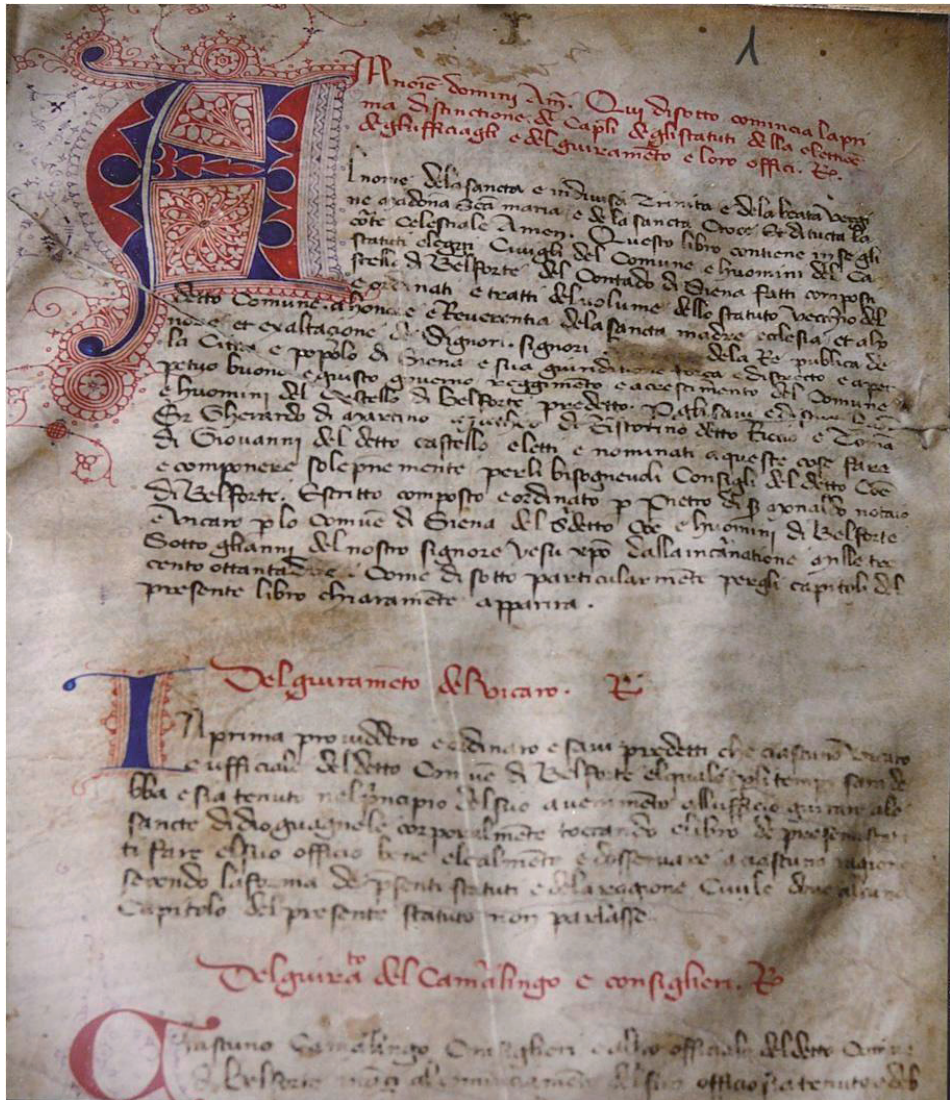 1
A
In noie domini Am̃. Qui disotto comincia lapri
ma distinctione de Capli de glistatuti della electiōe
deglufficiagli e del guiramēto e loro offici. R̃.
l nome dela sancta e indivisa Trinita e dela beata vergi
ne madona Sc̃a maria e de la sancta Croce Et di tucta la
corte Celestiale Amen. Questo libro contiene in se gli
statuti Civigli del Comune e huomini del Ca
stello di Belforte del Contado di Siena fatti composti
e ordinati e tratti del volume dello statuto vecchio del
detto Comune. a honore e Reverentia dela sancta madre ecclesia, et alo
nore et exaltacione de Signori. signori dela Re publica de
la Citta e popolo di Siena e sua e districto e a per
petuo buono e giusto governo reggimēto e acrescimento del Comune
e huomini del Castello di Belforte predetto. Pegli savi
Gherardo di martino di Ristorino detto Riccio e Toma
di Giovanni del detto castello eletti e nominati a queste cose fare
e componere solepnemente perli bisognevoli Consigli del detto Coē
di Belforte. Escritto composto e ordinato p Pietro di notaio
e vicaro plo Comūe di Siena del sdetto Coe e huomini di Belforte
Sotto glianni del nostro signore yesu xpo dallaincarnatione mille tre
cento ottanta Come di sotto particularmēte pergli capitoli del
presente libro chiaramēte apparira.
Del guiramēto del vicaro. R̃
I
N prima providero e ordinaro e savi predetti che ciascuno vicaro
e ufficiale del detto Comūe di Belforte elquale plitempi sara de
bba e sia tenuto nel principio del suo avenimēto alluffício guirare alo
sancte didio guagnele corporalmēte toccando elibro de presenti statu
ti fare elsuo officio bene elealmēte e dosservare a ciascuno ragione
secondo la forma de psenti statuti e dela ragione Civile dove alcuno
Capitolo del presente statuto non parlasse
Del guirato del Camalingo e consiglieri. R̃
C
iascuno Camalingo Consiglieri e altro officiale del detto Comune
di Belforte del suo officio sia tenuto e deb